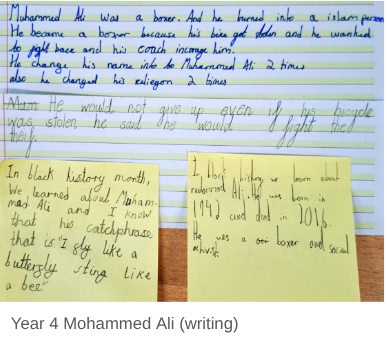 Muhammed Ali was a boxer. And he turned into a islam person
He became a boxer because his bike got stolen and he wanted
to fight back and his coach incorage him.
He change his name into to Muhammed Ali 2 times
also he changed his religon 2 times
Mum He would not give up even if his bicycle
was stolen he said he would fight the
theif.
In black history month,
We learned about Muham-
mad Ali and I know
that his catchphrase
that is "I fly like a
butterfly sting Like
a bee"
In black history we learn about
Muhammad Ali. He was born in
1942 and died in 2016.
He was a boxer and social
activist.
Year 4 Mohammed Ali (writing)